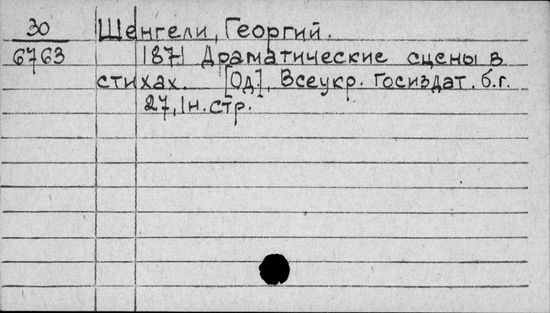 30 Шенгели, Георгий.
6763 1871 Драматические сцены в
стихах. [Од], Всеукр. Госиздат. б.г.
27, 1н. стр.